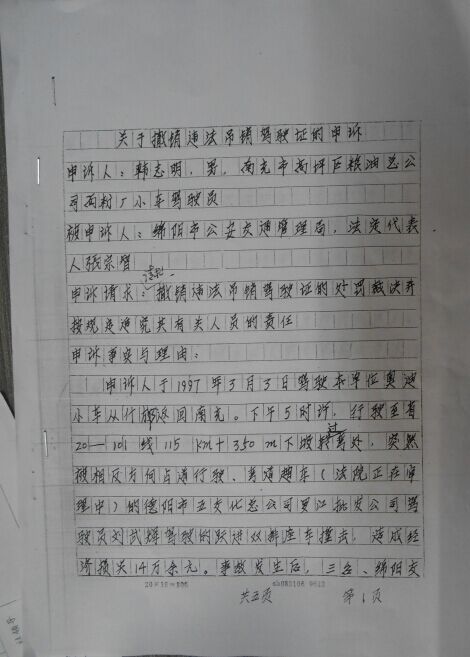 关于撤销违法吊销驾驶证的申诉
申诉人：韩志明，男，南充市高坪区粮油总公
司面粉厂小车驾驶员
被申诉人：绵阳市公安交通管理局，法定代表
人张宗智
申诉请求：请求撤销违法吊销驾驶证的处罚裁决并
按规定追究其有关人员的责任
申诉事实与理由：
申诉人于1997年3月3日驾驶本单位奥迪
小车从什邡返回南充。下午5时许，行驶至省
20—101线115km+350m下坡转过弯处，突然
被相反方向占道行驶、弯道超车（法院正在审
理中）的德阳市五交化总公司罗江批发公司驾
驶员刘武辉驾驶的跃进双排座车撞击，造成经
济损失14万余元。事故发生后，三台、绵阳交
20×15=300
共五页 第1页